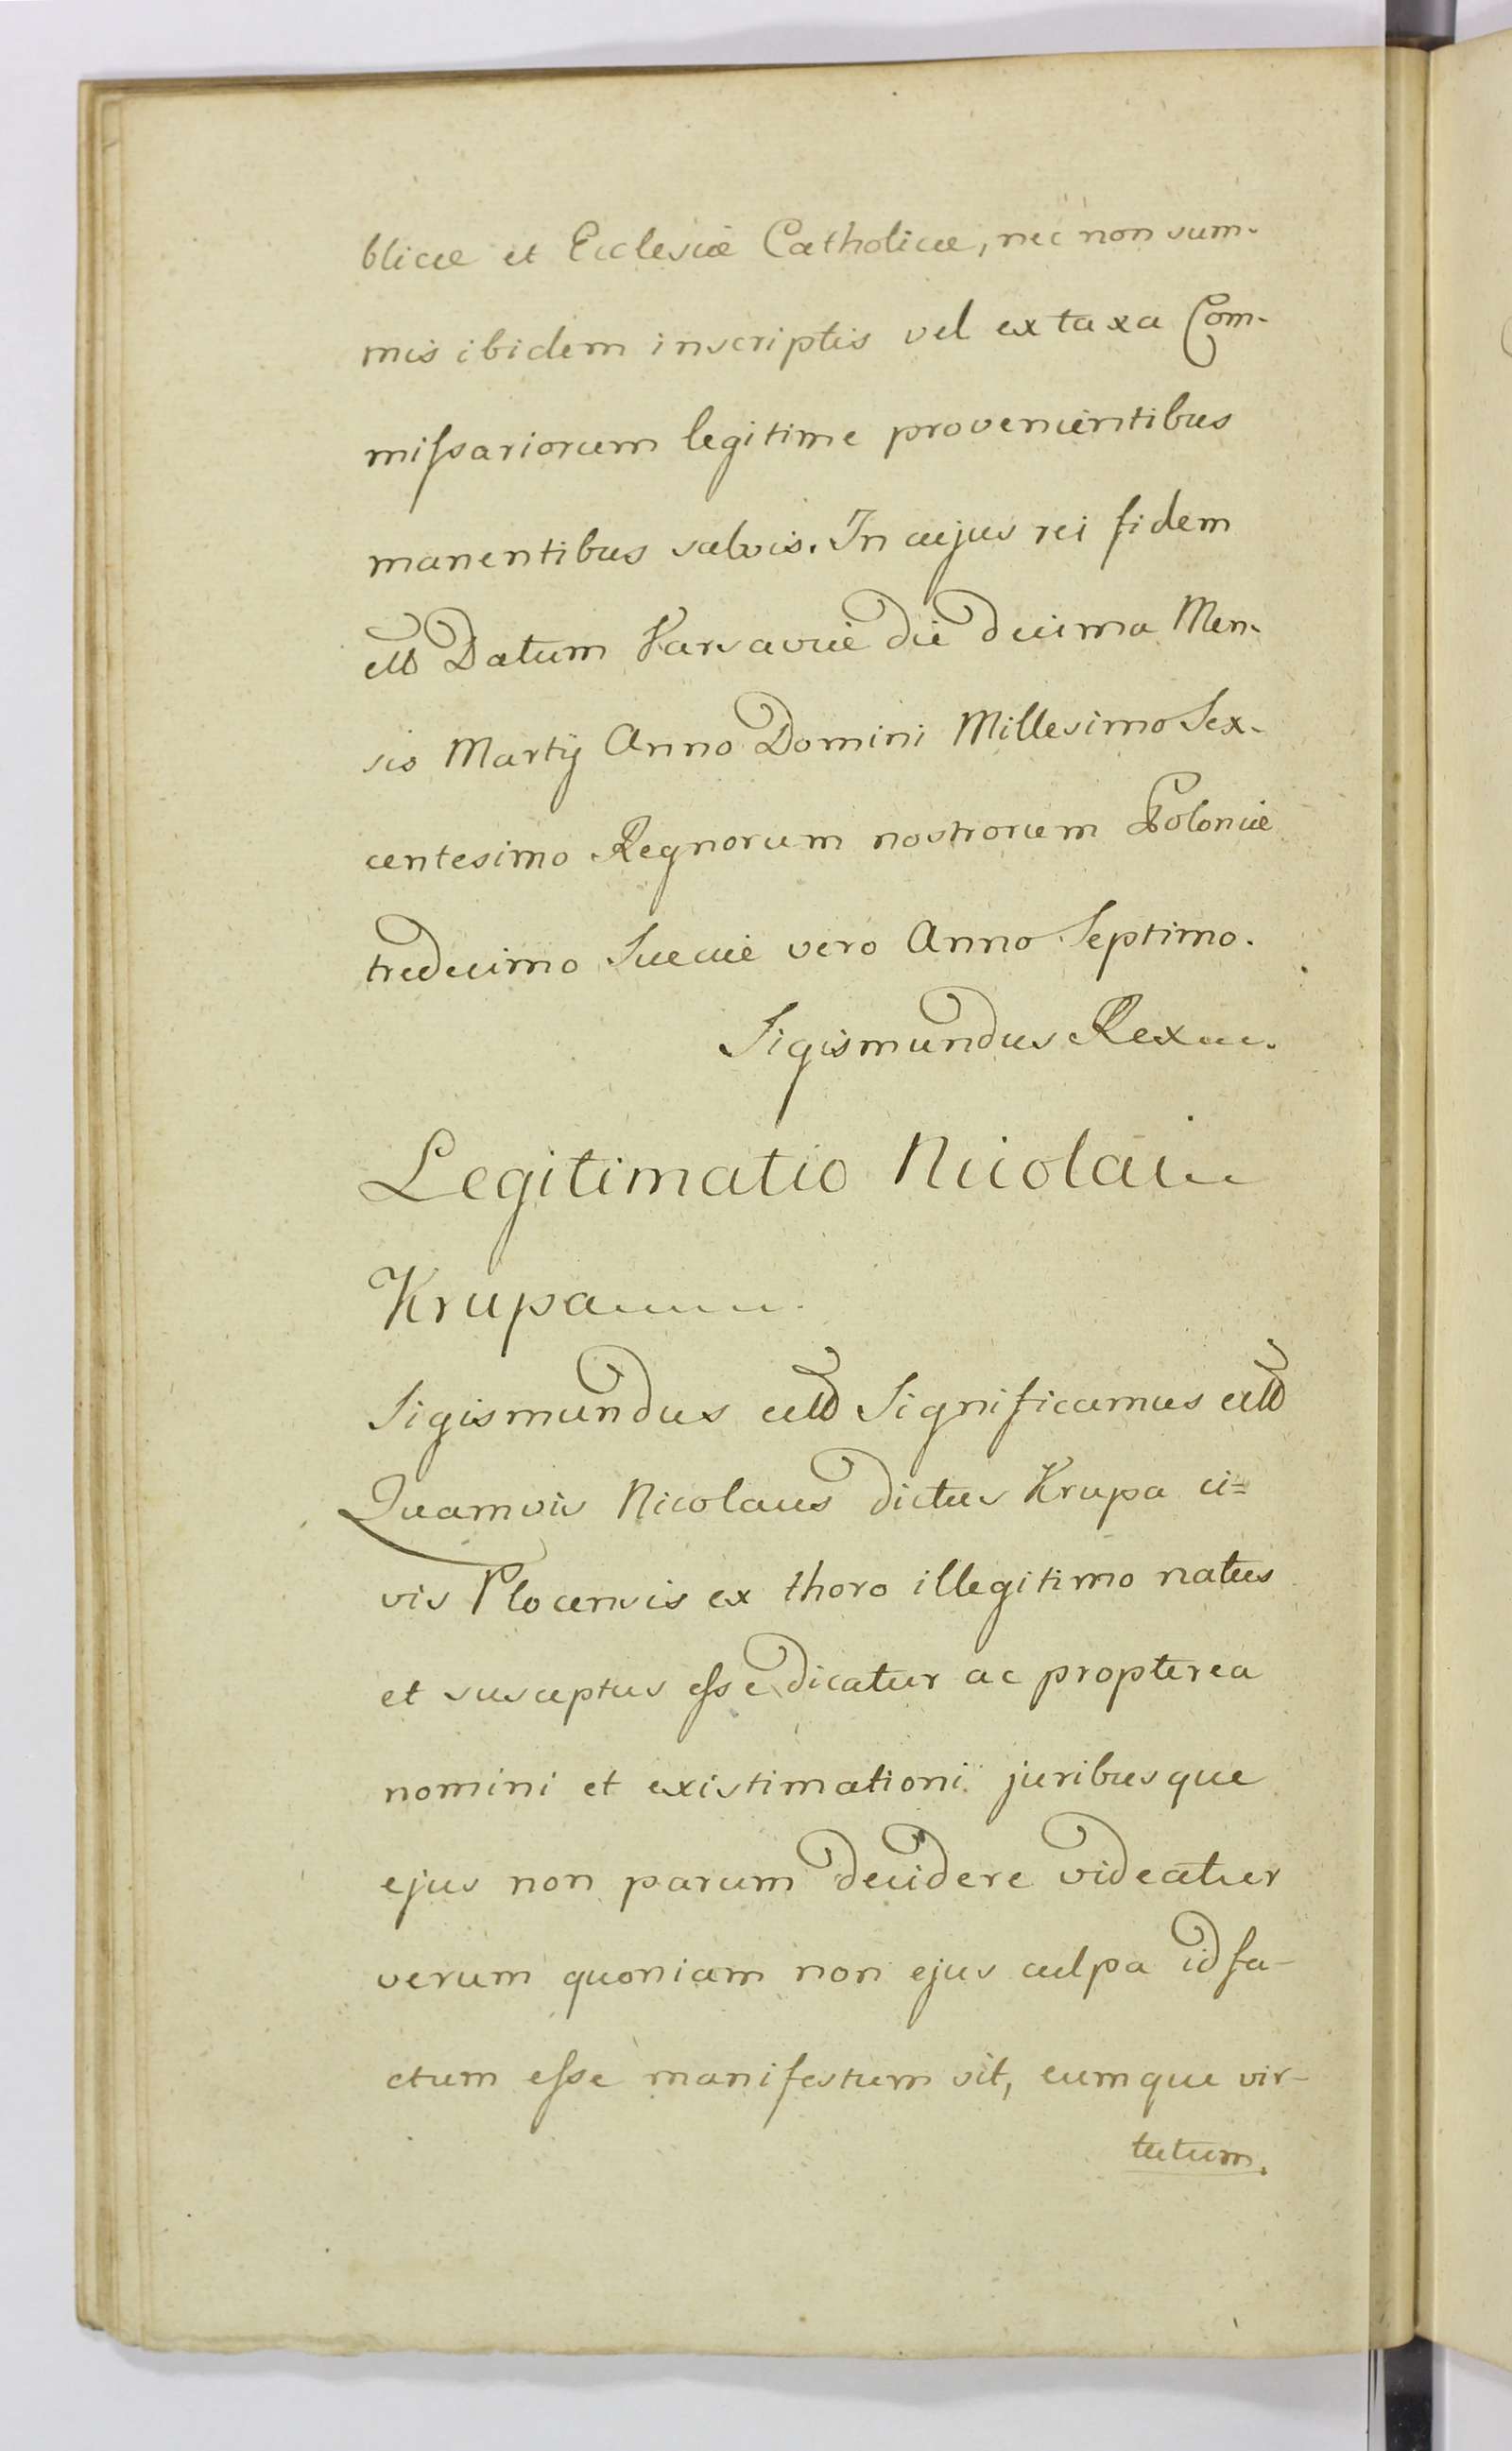 blicæ et Ecclesiæ Catholicæ, nec non sum-
mis ibidem inscriptis vel ex taxa Com-
miſsariorum legitime provenientibus
manentibus salvis. In cujus rei fidem
Datum Varsaviæ die decima Men-
sis Martij Anno Domini Millesimo Sex-
centesimo Regnorum nostrorum Poloniæ
tredecimo Sueciæ vero Anno Septimo.
Sigismundus Rex
Legitimatio Nicolai
Krupa
Sigismundus Significamus
Quamvis Nicolaus dictus Krupa ci=
vis Plocensis ex thoro illegitimo natus
et susceptus eſse dicatur ac propterea
nomini et existimationi juribusque
ejus non parum decidere videatur
verum quoniam non ejus culpa id fa-
ctum eſse manifestum sit, eumque vir-
tutum.